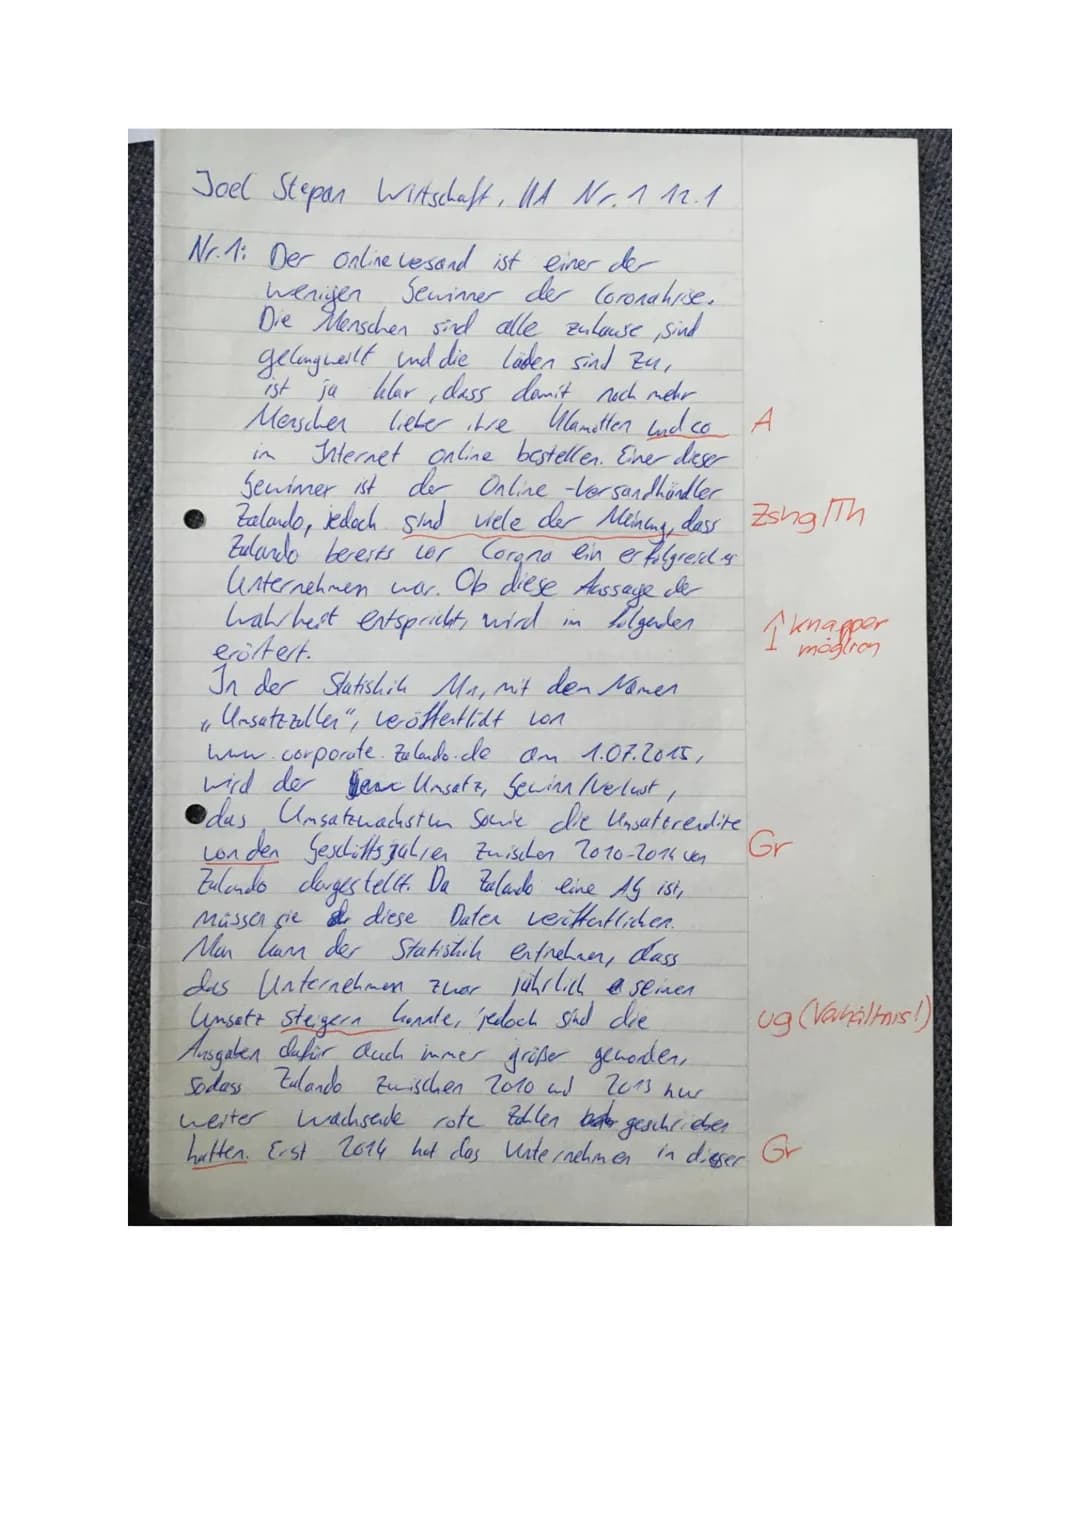 Joel Stepan Wirtschaft, HA Nr. 1 12.1
Nr. 1: Der onlineversand ist einer der
wenigen Gewinner der Coronakrise.
Die Menschen sind alle zuhause, sind
gelangweilt und die Läden sind zu,
ist ja klar, dass damit noch mehr
Menschen lieber ihre Klamotten und co A
im Internet online bestellen. Einer dieser
Gewinner ist der Online-Versandhändler
Zalando, jedoch sind viele der Meinung, dass Zshg/Th
Zalando bereits vor Corona ein erfolgreiches
Unternehmen war. Ob diese Aussage der
Wahrheit entspricht, wird im folgenden ↑ knapper
erörtert. möglich
In der Statistik M1, mit dem Namen
„Umsatzzahlen", veröffentlicht von
www.corporate.Zalando.de am 1.07.2015,
wird der Umsatz, Gewinn/Verlust,
das Umsatzwachstum sowie die Umsatzrendite
von den Geschäftsjahren zwischen 2010-2014 von Gr
Zalando dargestellt. Da Zalando eine AG ist,
müssen sie diese Daten veröffentlichen.
Man kann der Statistik entnehmen, dass
das Unternehmen zwar jährlich seinen
Umsatz steigern konnte, jedoch sind die ug (Verhältnis!)
Ausgaben dafür auch immer größer geworden,
sodass Zalando zwischen 2010 und 2013 nur
weiter wachsende rote Zahlen geschrieben
hatten. Erst 2014 hat das Unternehmen in dieser Gr